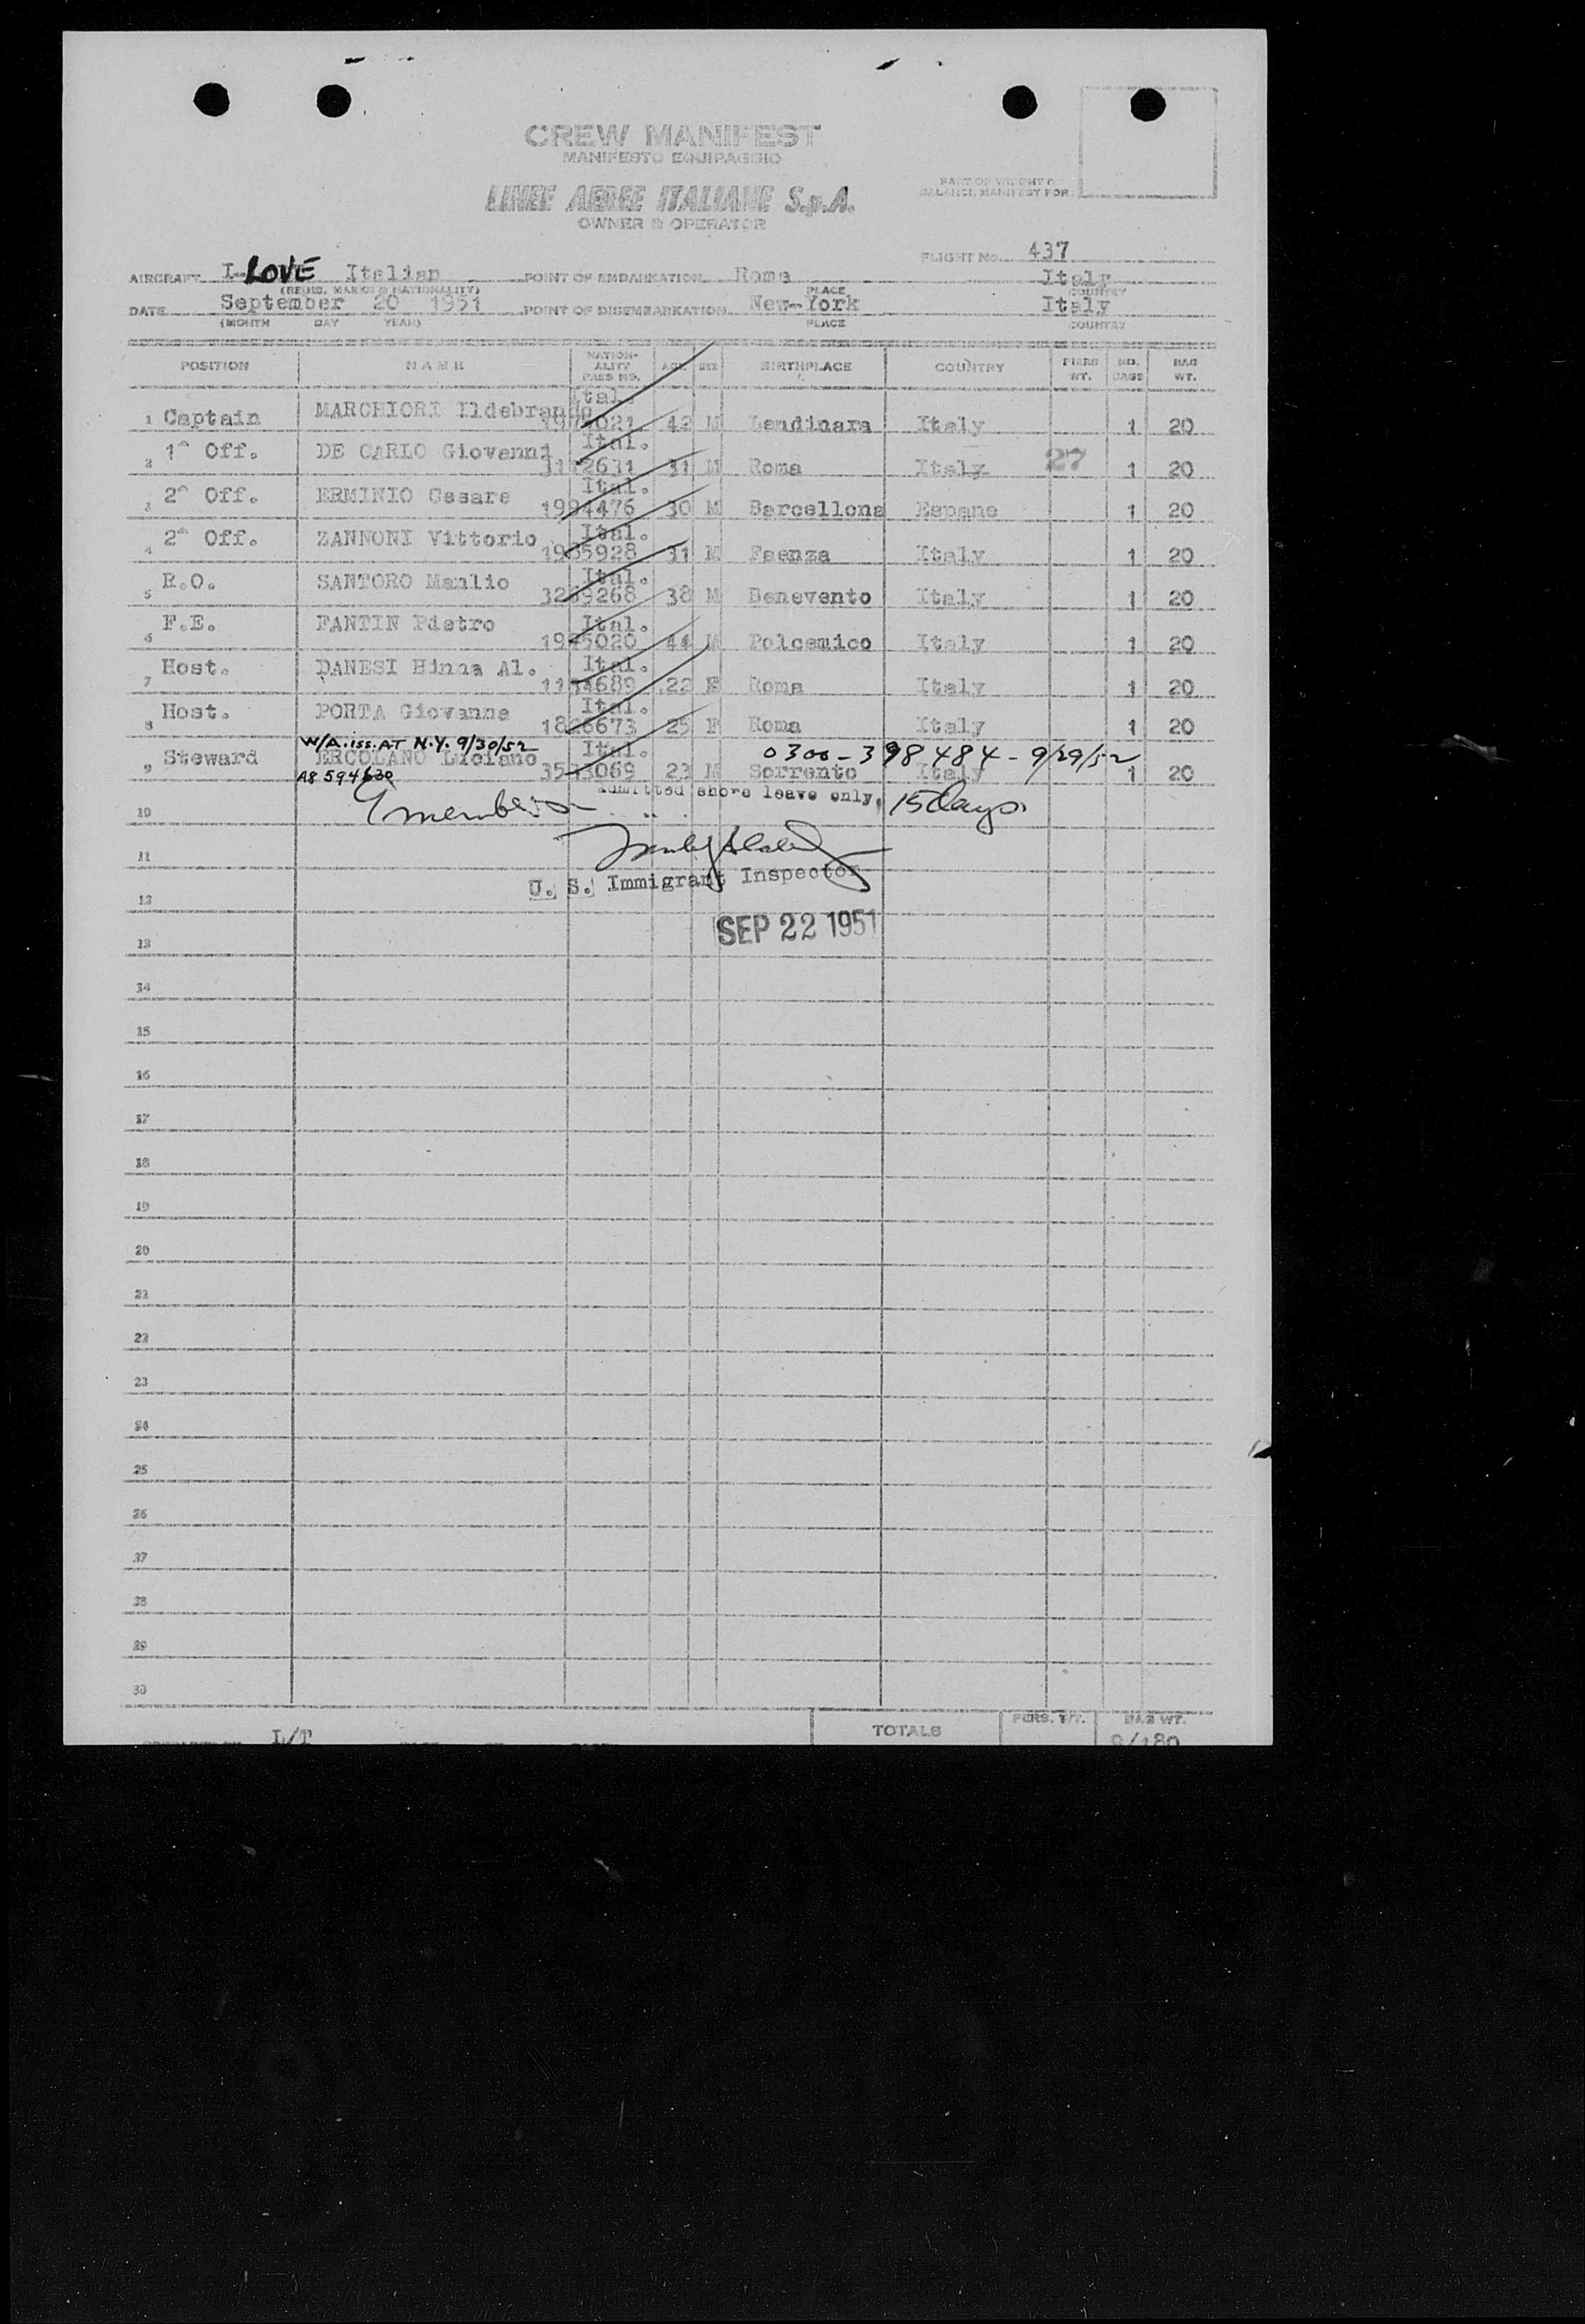 CREW MANIFEST
MANIFESTO EQUIPAGGIO
LINEE AEREE ITALIANE S.p.A.
OWNER & OPERATOR
PART OF WEIGHT &
BALANCE MANIFEST FOR:
FLIGHT No. 437
AIRCRAFT I-LOVE Italian POINT OF EMBARKATION Rome Italy
(REGIS. MARKS & NATIONALITY) PLACE COUNTRY
DATE September 20 1951 POINT OF DISEMBARKATION New-York Italy
(MONTH DAY YEAR) PLACE COUNTRY
POSITION NAME NATION-ALITY PASS NO. AGE SEX BIRTHPLACE COUNTRY PERS WT. NO. BAGS BAG WT.
1 Captain MARCHIORI Ildebrando Ital. 42 M Lendinara Italy 1 20
2 1^ Off. DE CARLO Giovanni Ital. 31 M Roma Italy 27 1 20
3 2^ Off. ERMINIO Cesare Ital. 1994476 30 M Barcellona Espane 1 20
4 2^ Off. ZANNONI Vittorio Ital. 31 M Faenza Italy 1 20
5 R.O. SANTORO Manlio Ital. 38 M Benevento Italy 1 20
6 F.E. FANTIN Pietro Ital. 44 M Polcemico Italy 1 20
7 Host. DANESI Hinna Al. Ital. 22 F Roma Italy 1 20
8 Host. PORTA Giovanna Ital. 25 F Roma Italy 1 20
W/A. iss. AT N.Y. 9/30/52 0300-398484-9/29/52
9 Steward ERCOLANO Luciano Ital. 23 M Sorrento Italy 1 20
A8 594630
9 members admitted shore leave only, 15 days
10
11
U. S. Immigrant Inspector
12
SEP 22 1951
13
14
15
16
17
18
19
20
21
22
23
24
25
26
27
28
29
30
TOTALS PERS. WT. BAG WT.
L/T 9/180